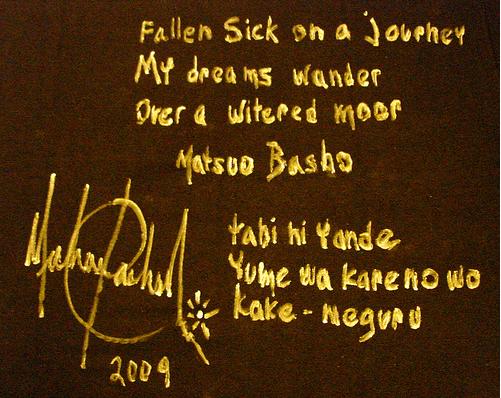 Fallen Sick on a Journey
My dreams wander
Over a witered moor
Matsuo Basho
tabi ni Yande
Yume wa kareno wo
kake-meguru
2009